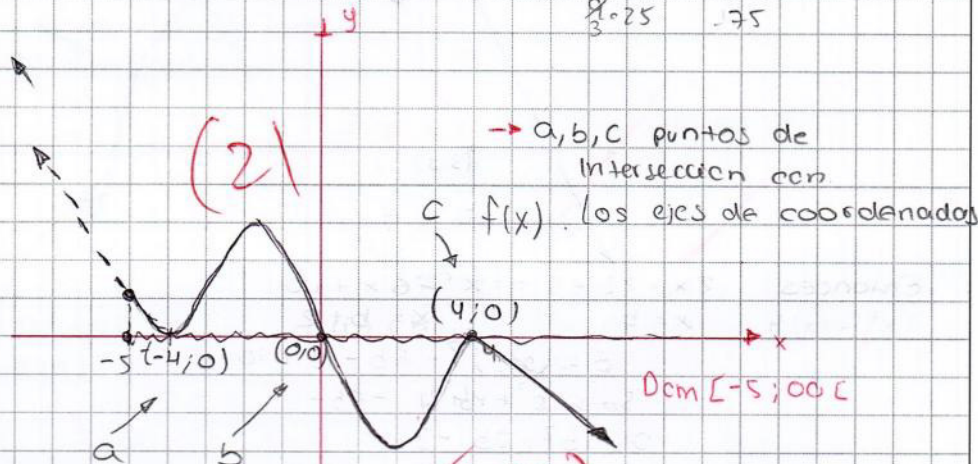 .25 .75
3
y
→ a,b,c puntos de
Intersección con
(2)
c f(x). los ejes de coordenadas
(4;0)
-5 (-4;0) (0,0) 4 x
Dom [-5;00[
a b